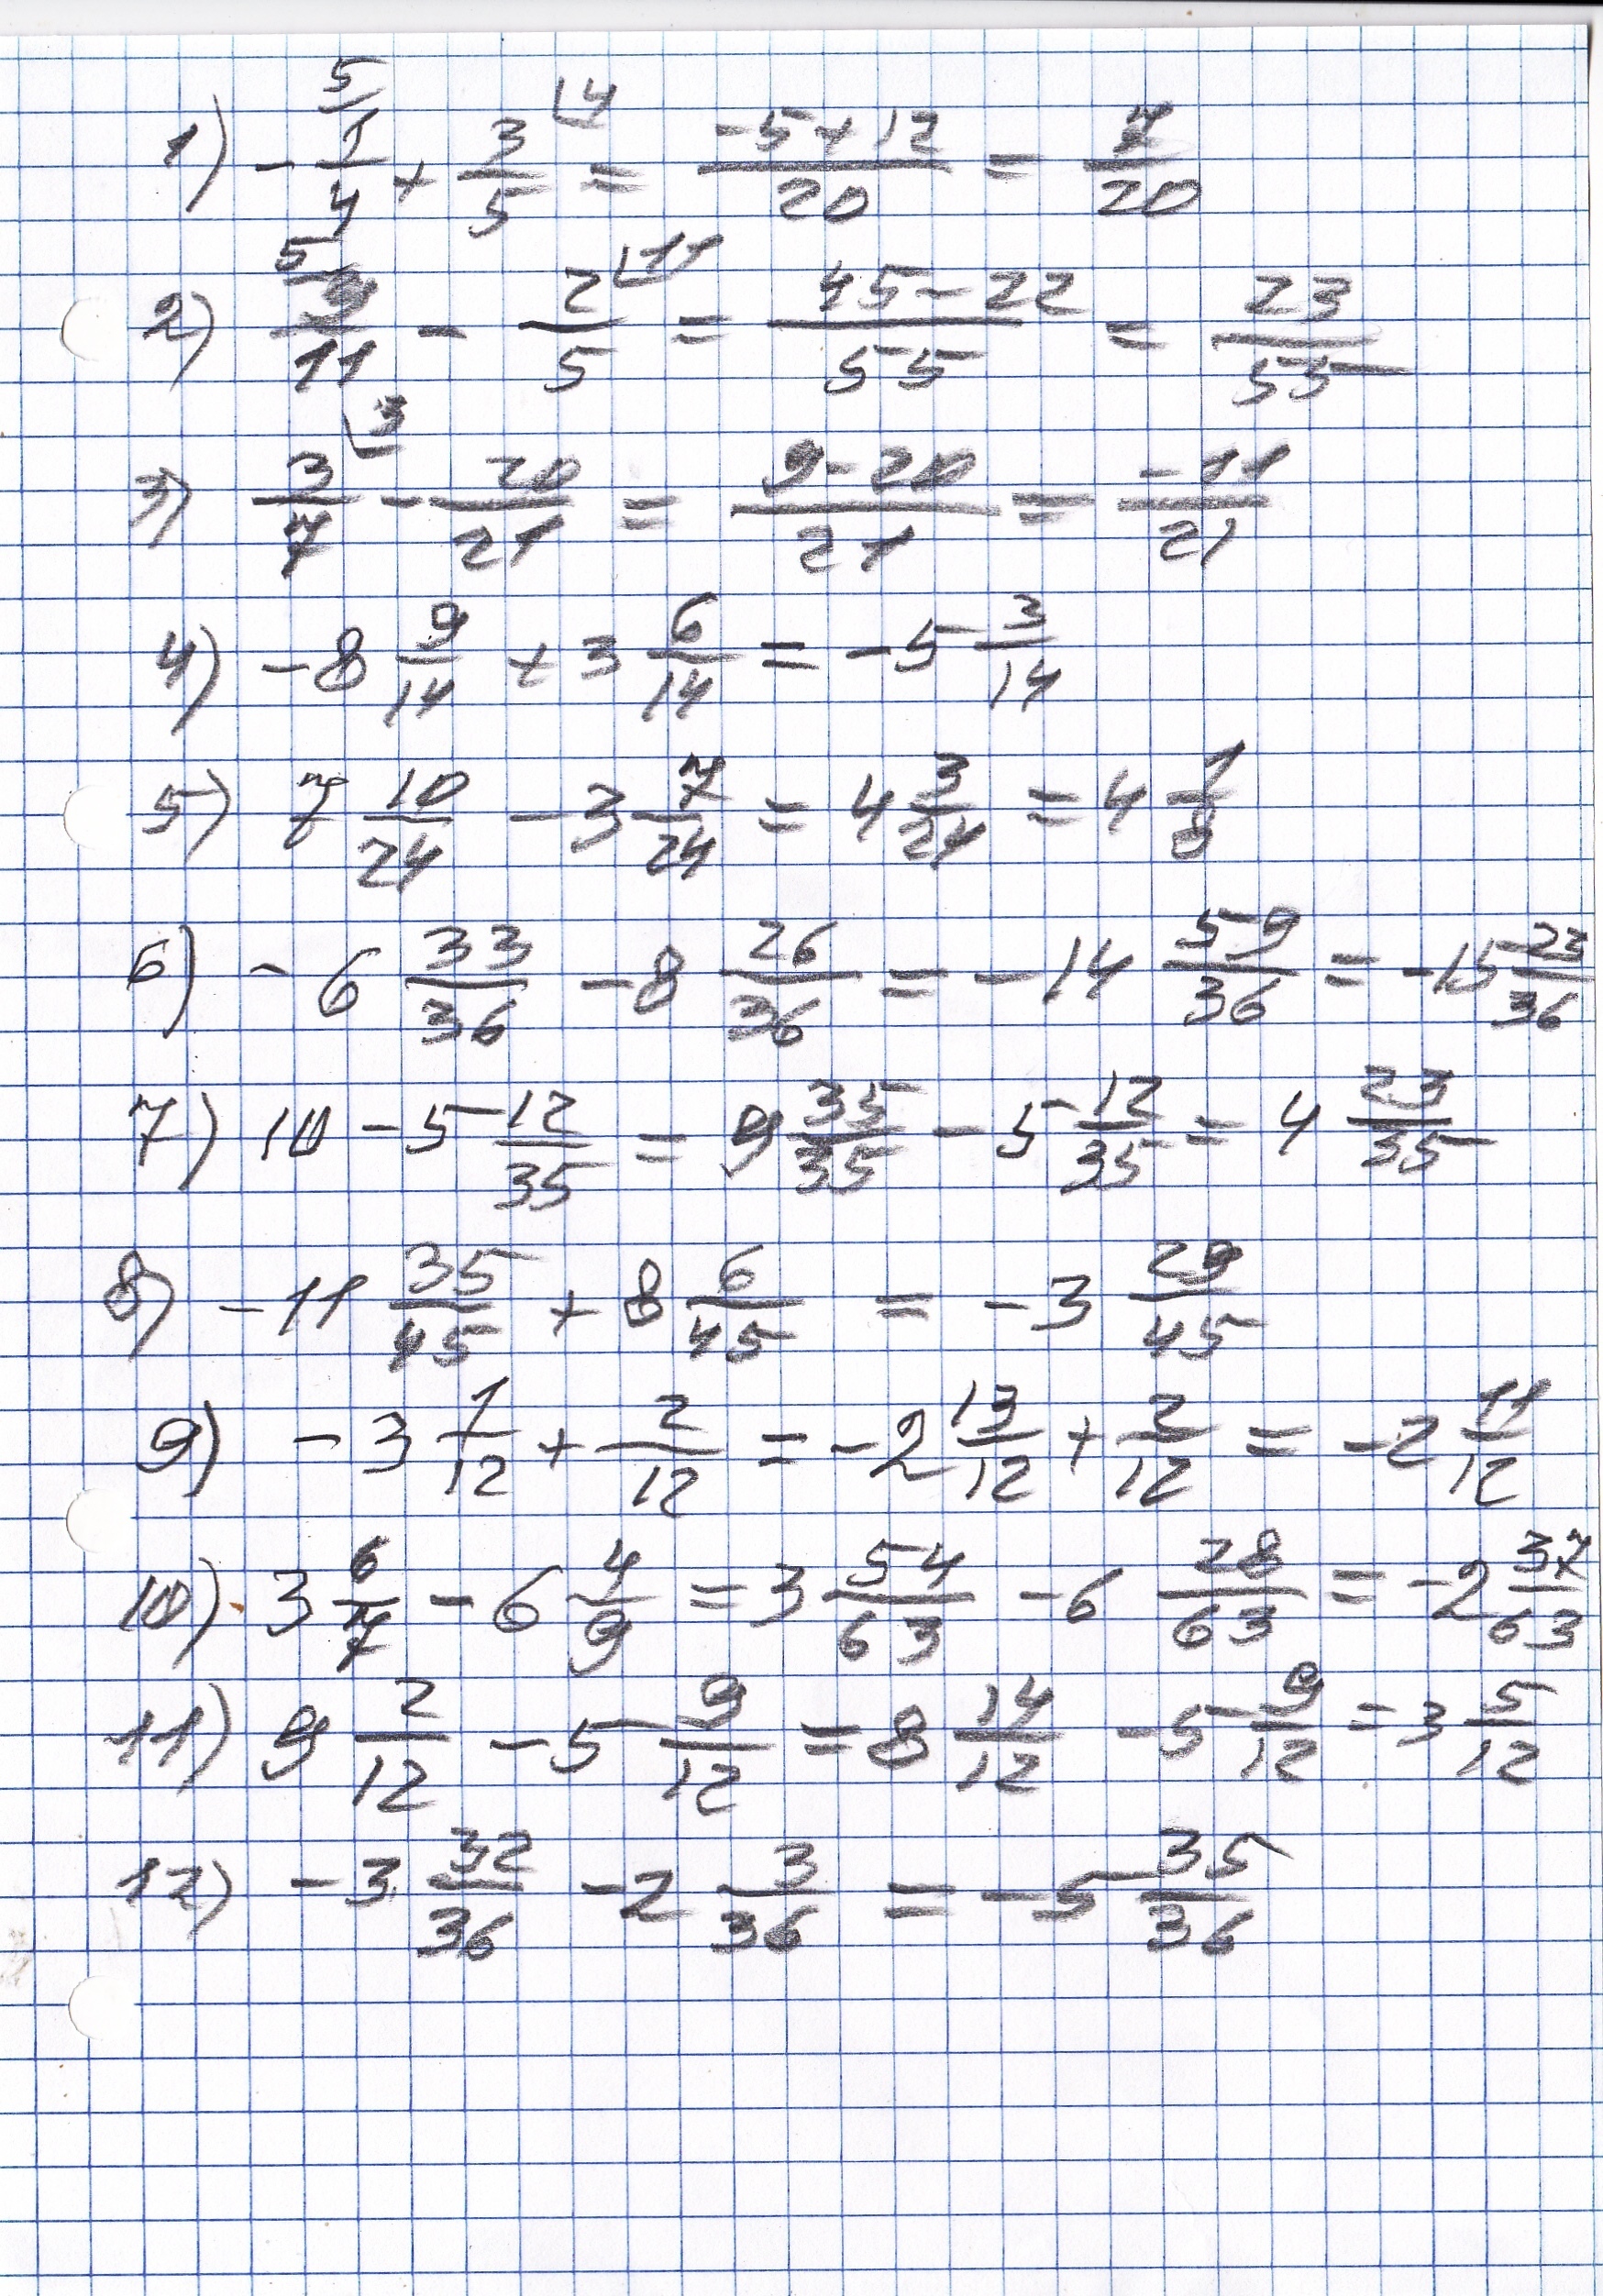 1) -1/4 (5 + 3/5 (4 = (-5+12)/20 = 7/20
2) 9/11 (5 - 2/5 (11 = (45-22)/55 = 23/55
3) 3/7 (3 - 20/21 = (9-20)/21 = -11/21
4) -8 9/14 + 3 6/14 = -5 3/14
5) 7 10/24 - 3 7/24 = 4 3/24 = 4 1/8
6) -6 33/36 - 8 26/36 = -14 59/36 = -15 23/36
7) 10 - 5 12/35 = 9 35/35 - 5 12/35 = 4 23/35
8) -11 35/45 + 8 6/45 = -3 29/45
9) -3 1/12 + 2/12 = -2 13/12 + 2/12 = -2 11/12
10) 3 6/7 - 6 4/9 = 3 54/63 - 6 28/63 = -2 37/63
11) 9 2/12 - 5 9/12 = 8 14/12 - 5 9/12 = 3 5/12
12) -3 32/36 - 2 3/36 = -5 35/36